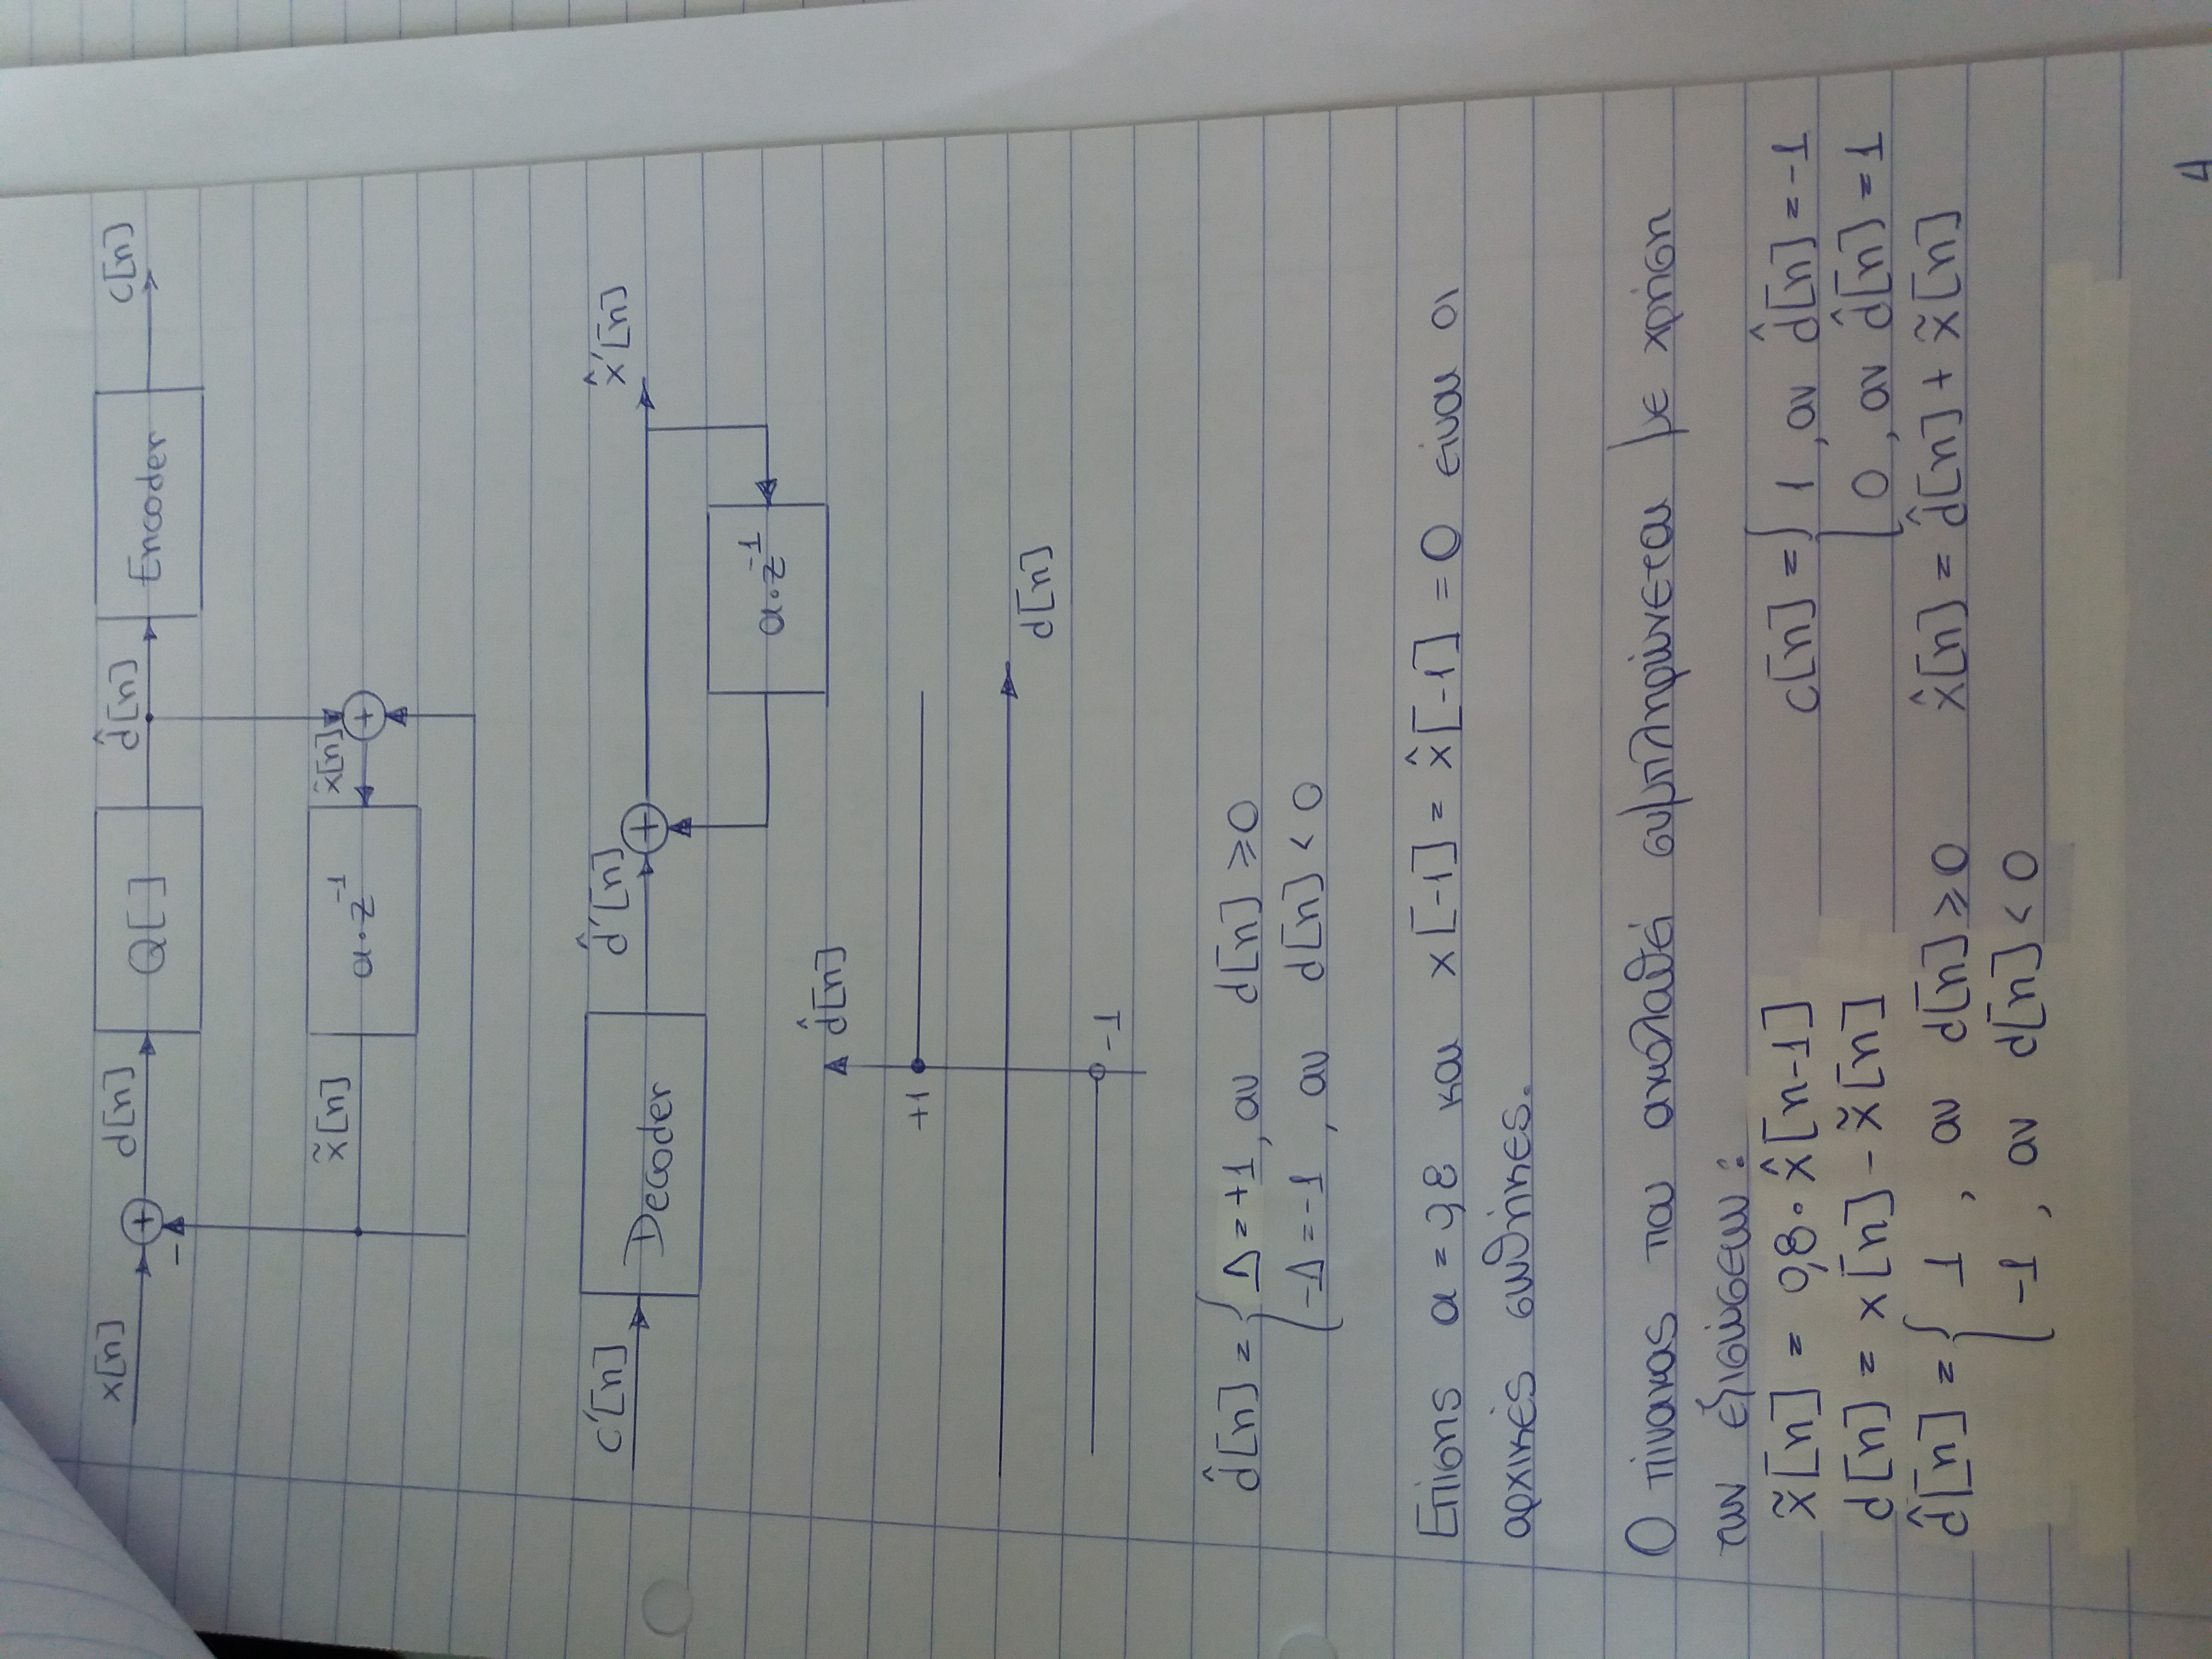 x[n] + d[n] Q[ ] d̂[n] Encoder c[n]
−
x̃[n] a·z⁻¹ x̂[n] +
c'[n] Decoder d̂'[n] + x̂'[n]
a·z⁻¹
d̂[n]
+1
d[n]
-1
d̂[n] = { Δ = +1, αν d[n] ≥ 0
-Δ = -1, αν d[n] < 0
Επίσης a = 0,8 και x[-1] = x̂[-1] = 0 είναι οι
αρχικές συνθήκες.
Ο πίνακας που ακολουθεί συμπληρώνεται με χρήση
των εξισώσεων:
x̃[n] = 0,8·x̂[n-1] c[n] = { 1, αν d̂[n] = -1
d[n] = x[n] - x̃[n] 0, αν d̂[n] = 1
d̂[n] = { 1, αν d[n] ≥ 0 x̂[n] = d̂[n] + x̃[n]
-1, αν d[n] < 0
4